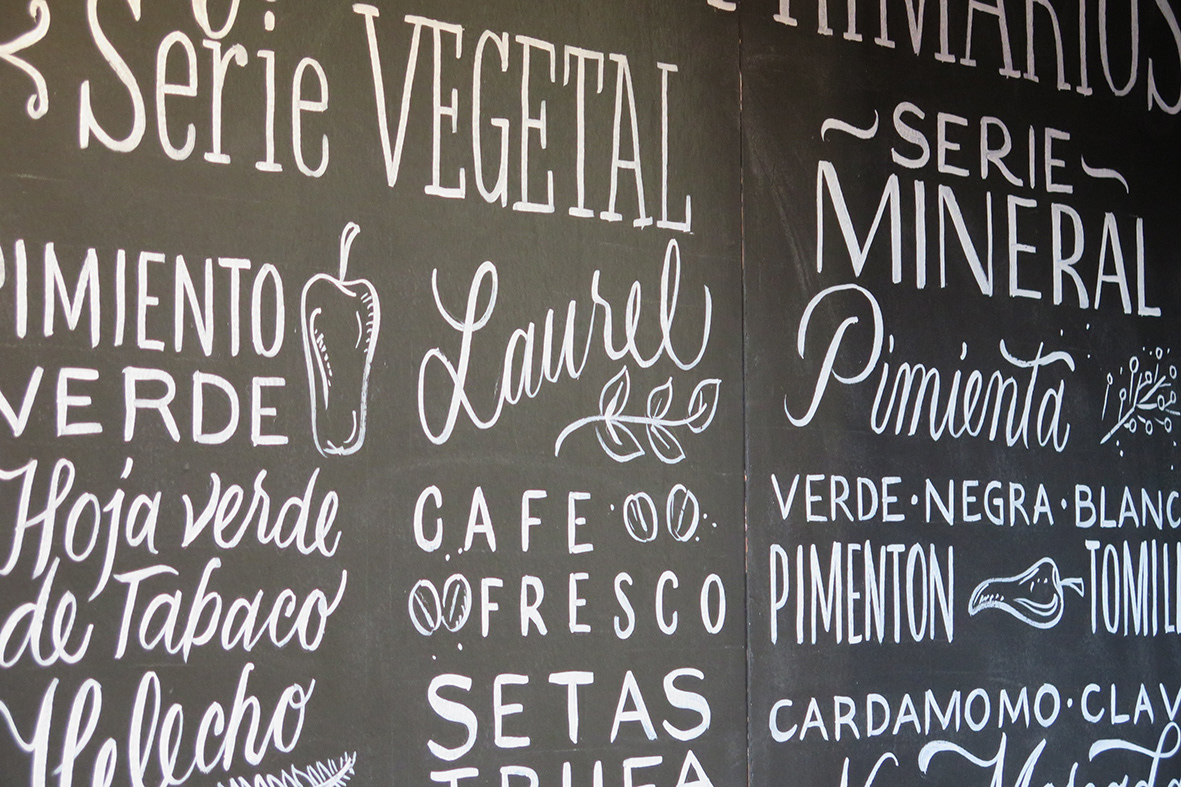 Serie VEGETAL
PIMIENTO
VERDE
Hoja verde
de Tabaco
Helecho
Laurel
CAFE
FRESCO
SETAS
TRUFA
PRIMARIOS
SERIE
MINERAL
Pimienta
VERDE·NEGRA·BLANC
PIMENTON TOMILL
CARDAMOMO·CLAV